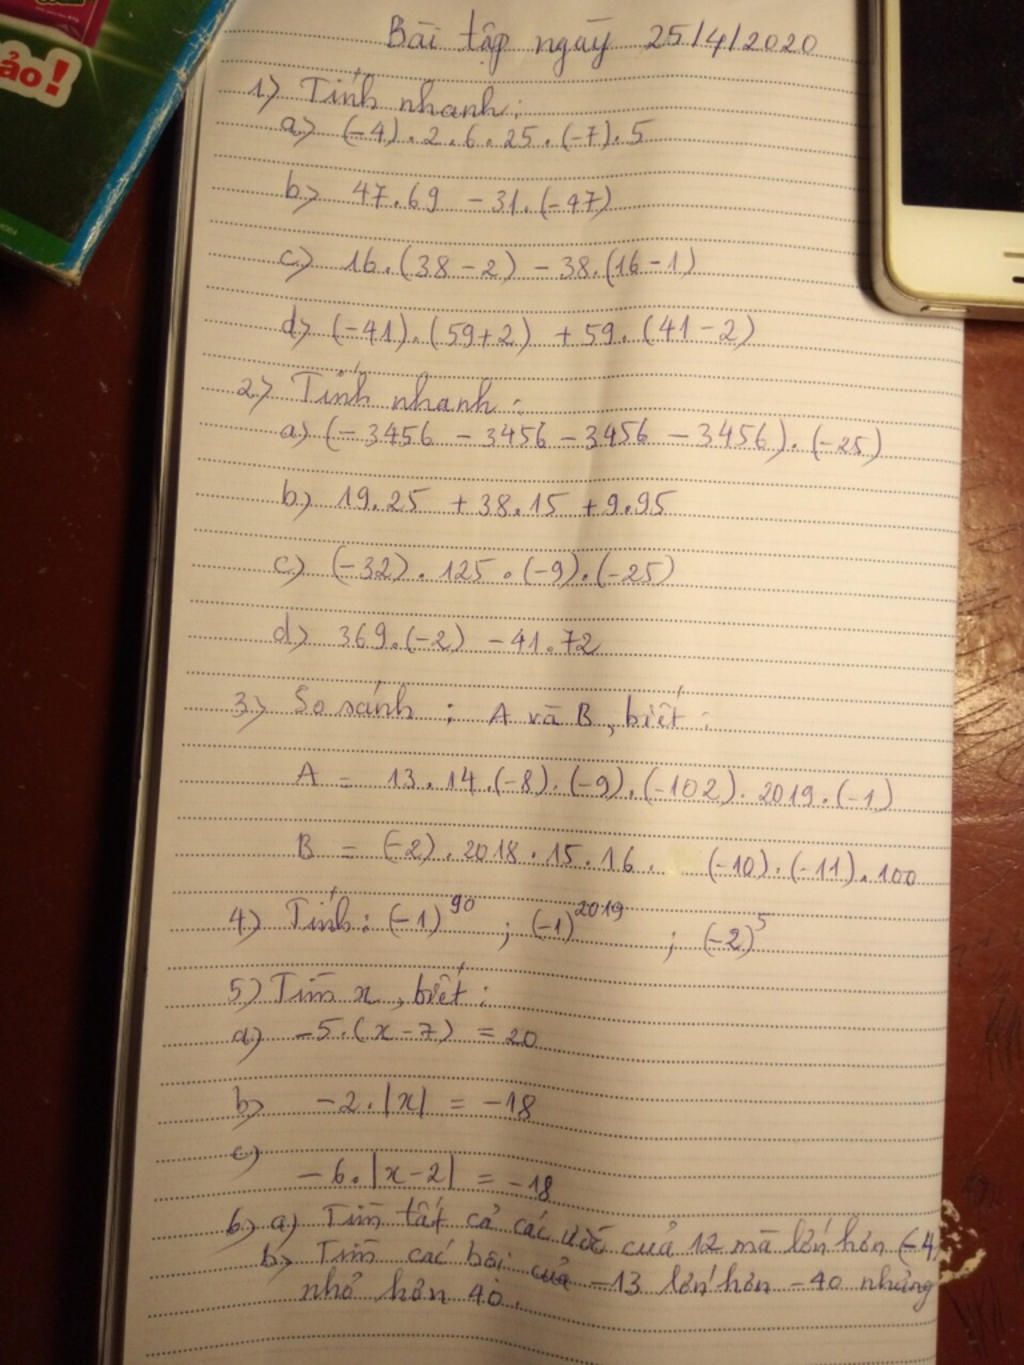 ảo!
Bài tập ngày 25/4/2020
1) Tính nhanh:
a) (-4).2.6.25.(-7).5
b) 47.69 - 31.(-47)
c) 16.(38-2) - 38.(16-1)
d) (-41).(59+2) + 59.(41-2)
2) Tính nhanh:
a) (-3456 - 3456 - 3456 - 3456).(-25)
b) 19.25 + 38.15 + 9.95
c) (-32).125.(-9).(-25)
d) 369.(-2) - 41.72
3) So sánh: A và B, biết:
A = 13.14.(-8).(-9).(-102).2019.(-1)
B = (-2).2018.15.16. (-10).(-11).100
4) Tính: (-1)⁹⁰ ; (-1)²⁰¹⁹ ; (-2)⁵
5) Tìm x, biết:
a) -5.(x-7) = 20
b) -2.|x| = -18
c)
-6.|x-2| = -18
6) a) Tìm tất cả các ước của 12 mà lớn hơn (-4)
b) Tìm các bội của -13 lớn hơn -40 nhưng
nhỏ hơn 40.